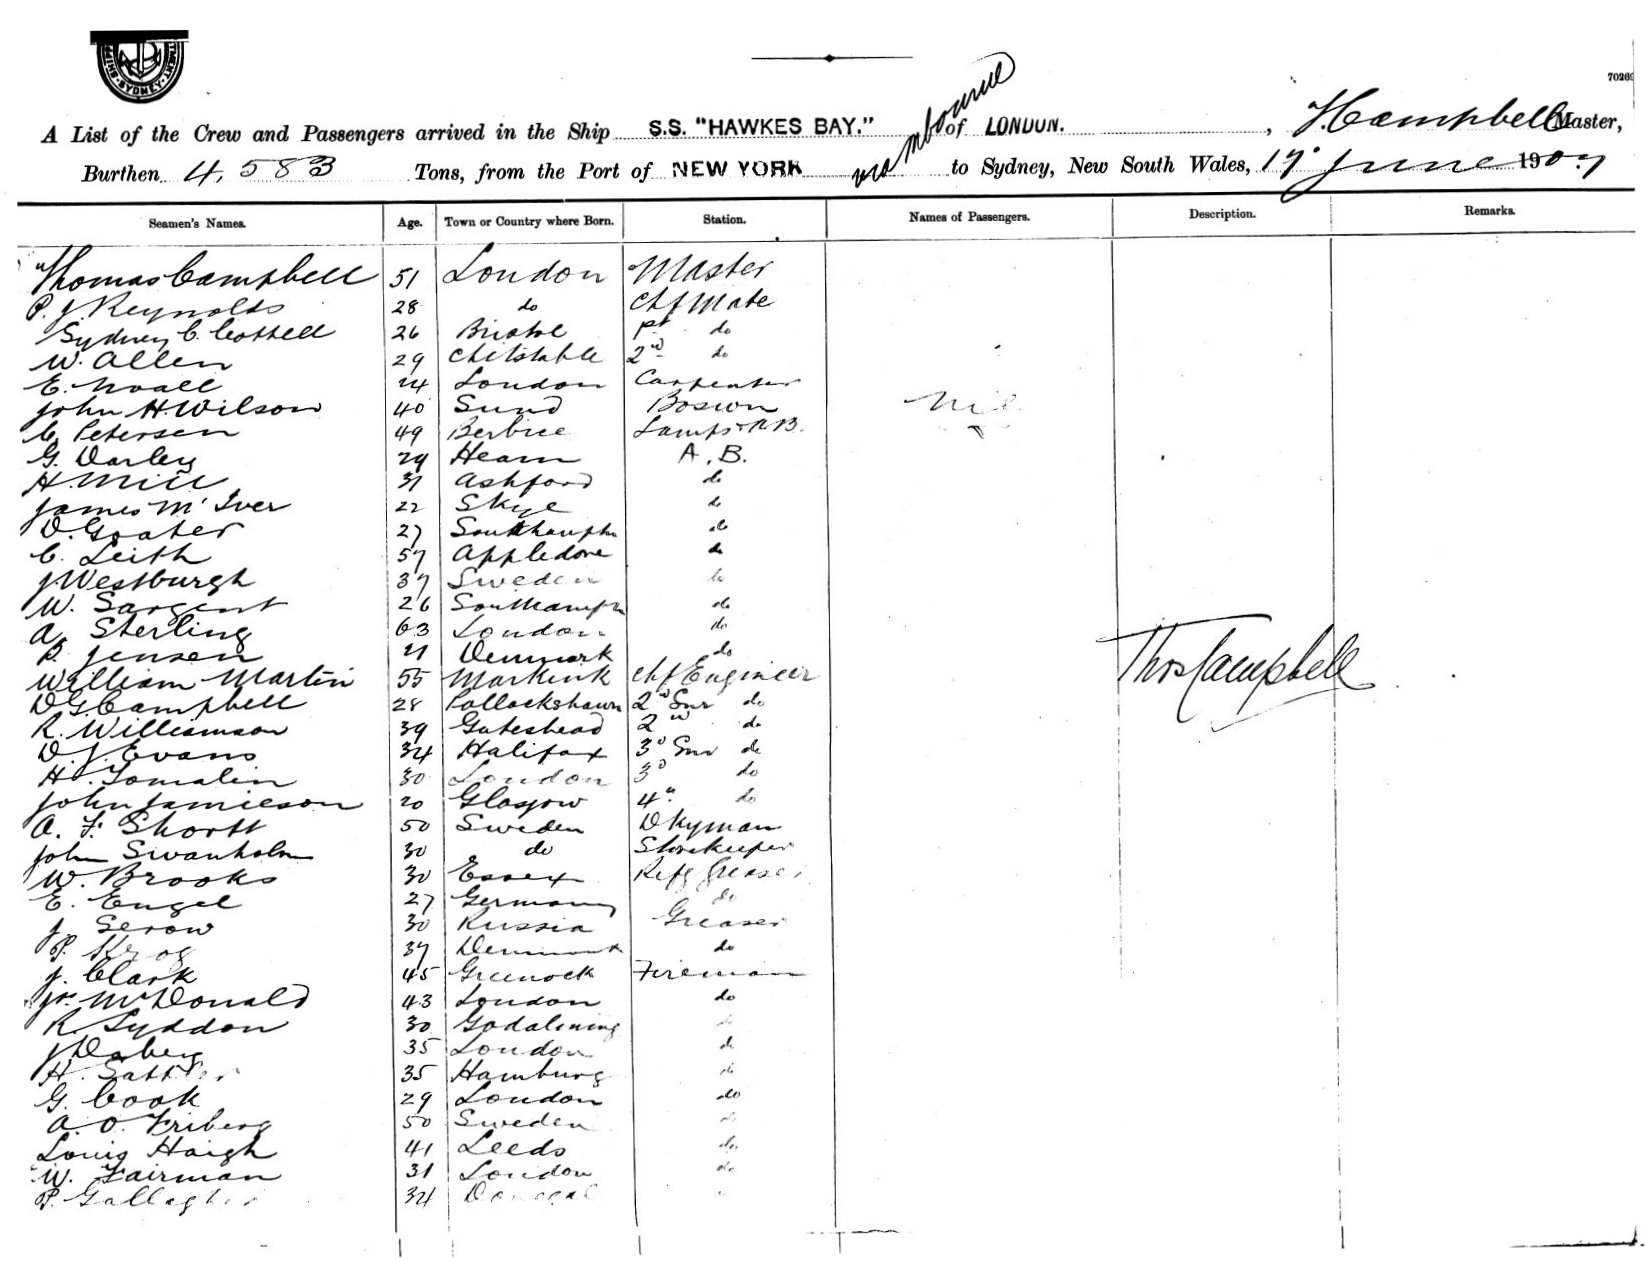 SYDNEY
70269
via Melbourne
A List of the Crew and Passengers arrived in the Ship S.S. "HAWKES BAY." of LONDON. , T. Campbell Master,
Burthen 4,583 Tons, from the Port of NEW YORK to Sydney, New South Wales, 17 June 1907
Seamen's Names. Age. Town or Country where Born. Station. Names of Passengers. Description. Remarks.
Thomas Campbell 51 London Master
P. J. Reynolds 28 do Chf Mate
Sydney C. Cottrell 26 Bristol do
W. Allen 29 2nd do
E. Noall 24 London Carpenter
John H. Wilson 40 Sund Boswn Nil
C. Petersen 49 Berbice Lamps & A.B.
G. Darley 29 Hearn A.B.
H. Mill 31 Ashford do
James McIver 22 Skye do
D. Goater 27 Southampton do
C. Leith 57 Appledore do
J Westburgh 37 Sweden do
W. Sargent 26 Southampton do
A. Sterling 63 London do
P. Jensen 21 Denmark do
William Martin 55 Markinch Chf Engineer
Thos Campbell
D G Campbell 28 Pollockshaws 2nd Snr do
R. Williamson 39 Gateshead 2nd do
D. J. Evans 34 Halifax 3d Snr do
H. Tomalin 30 London 3d do
John Jamieson 20 Glasgow 4th do
A. F. Shortt 50 Sweden Dkyman
John Swanholm 30 do Storekeeper
W. Brooks 30 Essex Refg Greaser
E. Engel 27 Germany do
J. Serow 30 Russia Greaser
P. Krog 37 Denmark do
J. Clark 45 Greenock Fireman
Jn. McDonald 43 London do
R. Lyddon 30 Godalming do
J Dabey 35 London do
H. Sattler 35 Hamburg do
G. Cook 29 London do
A. O. Friberg 50 Sweden do
Louis Haigh 41 Leeds do
W. Fairman 31 London do
P. Gallagher 34 Donegal